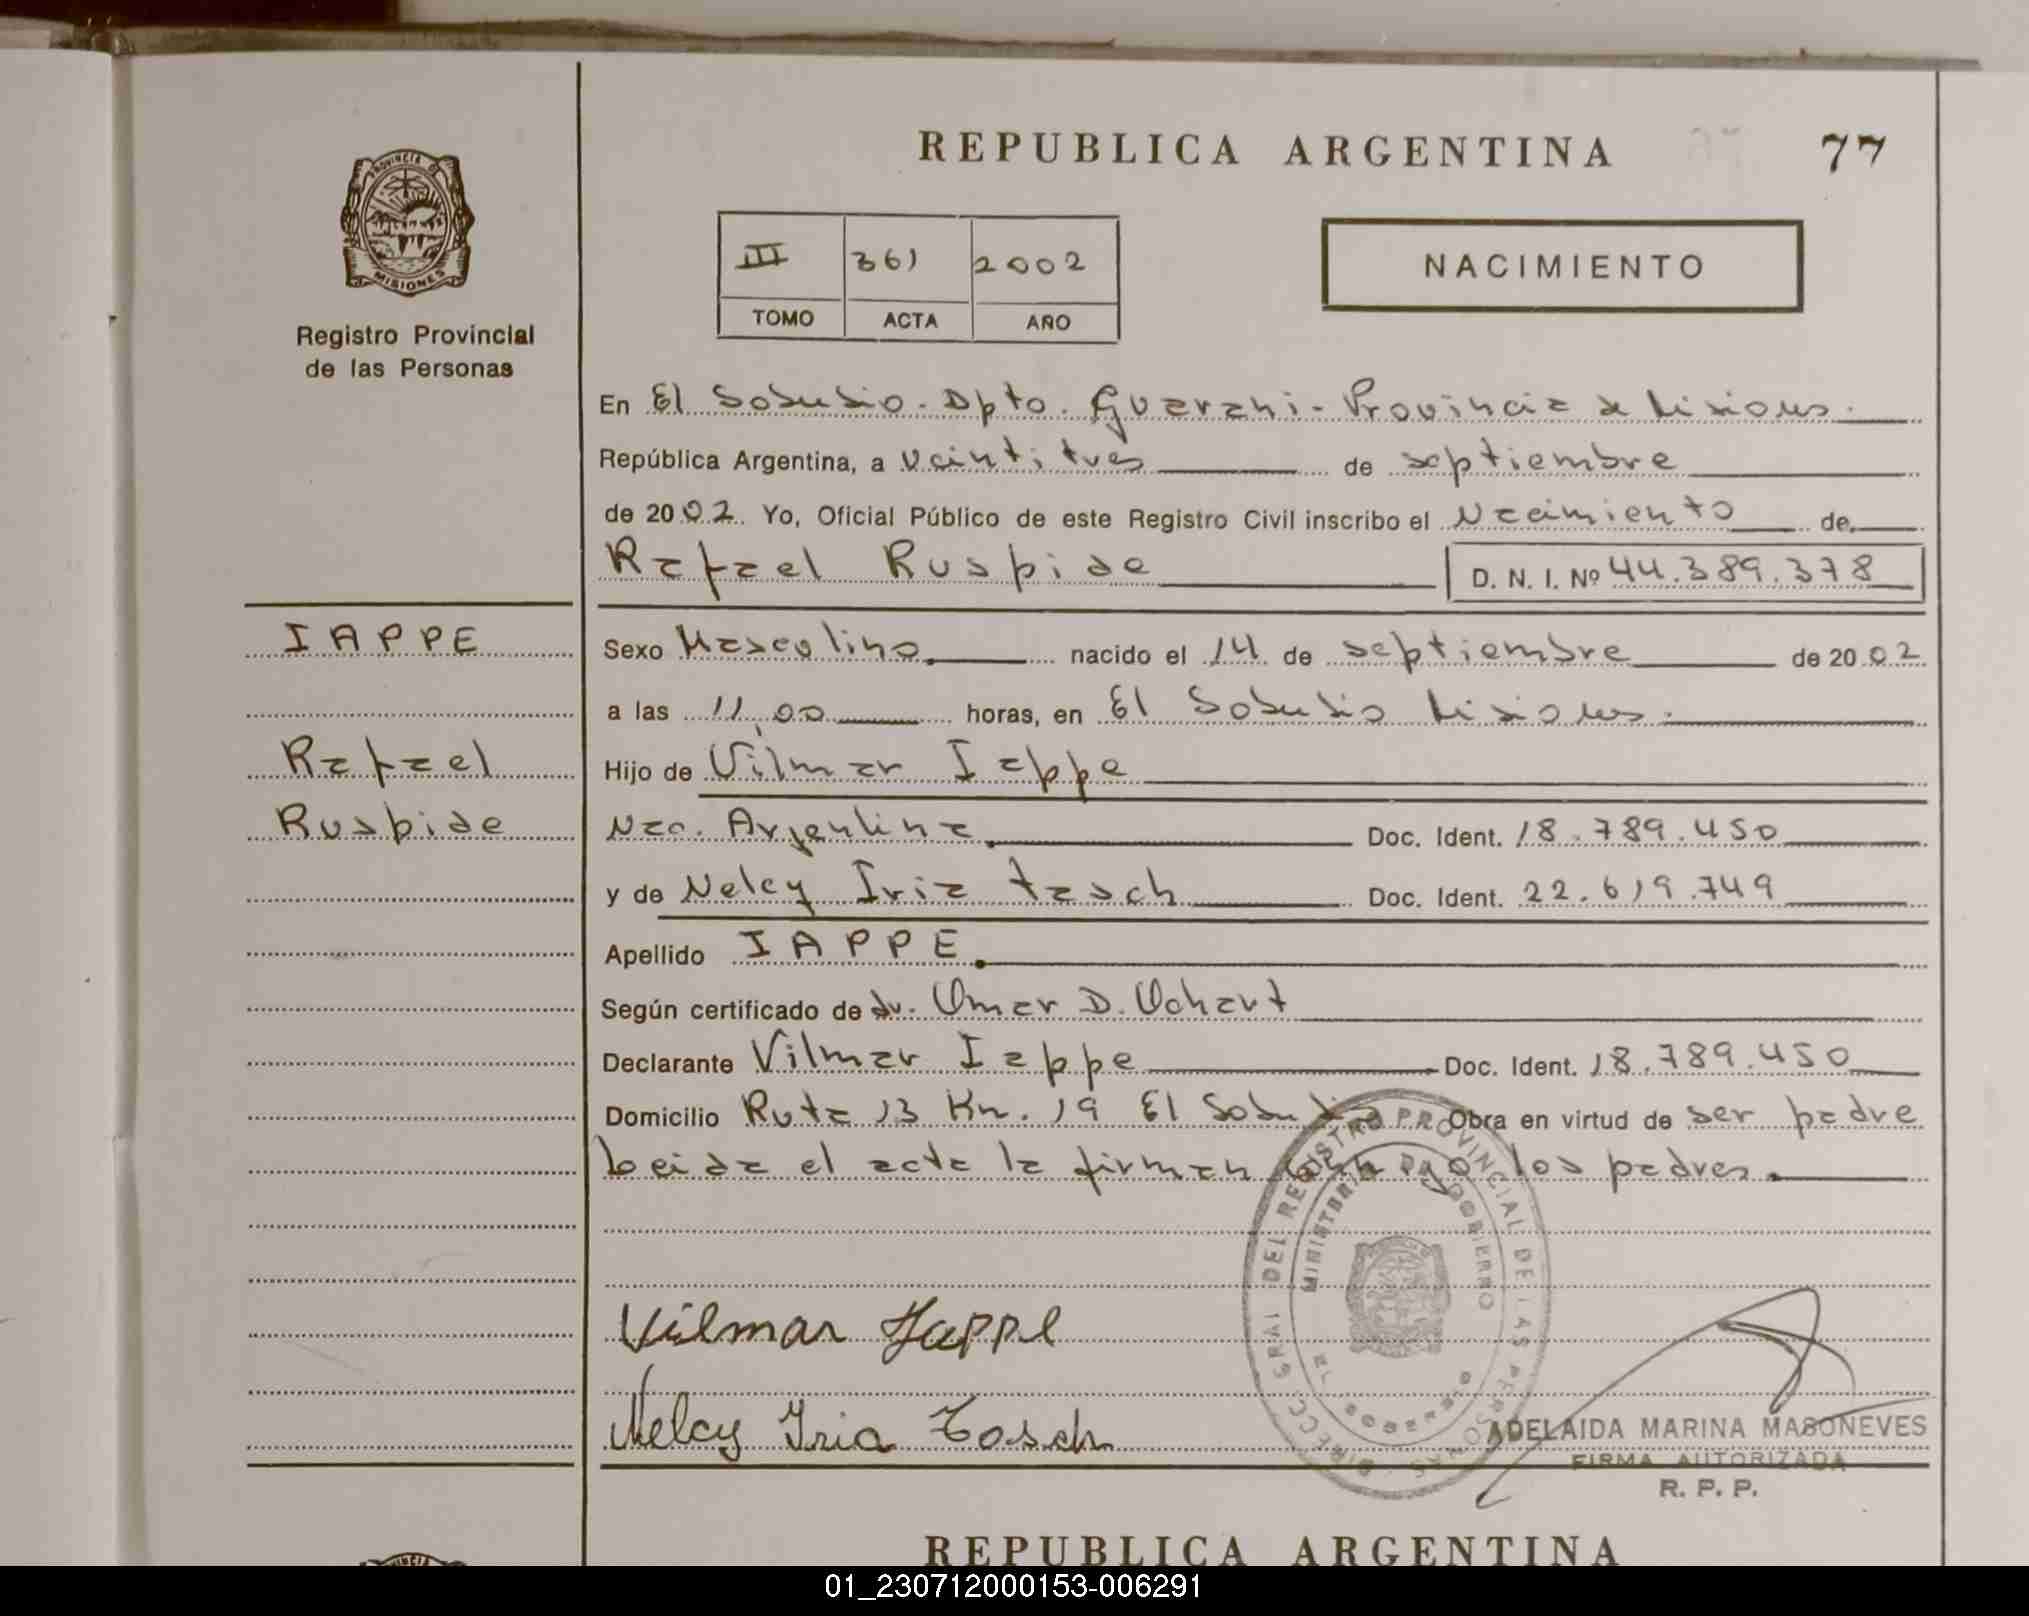 REPUBLICA ARGENTINA 77
PROVINCIA DE
MISIONES
Registro Provincial
de las Personas
III 361 2002
TOMO ACTA AÑO
NACIMIENTO
En El Soberbio - Dpto. Guarani - Provincia de Misiones.
República Argentina, a veintitres de septiembre
de 2002. Yo, Oficial Público de este Registro Civil inscribo el Nacimiento de
Rafael Ruspide D. N. I. Nº 44.389.378
IAPPE
Sexo Masculino nacido el 14 de septiembre de 2002
a las 11,00 horas, en El Soberbio Misiones.
Rafael
Hijo de Vilmar Iappe
Ruspide
Nac. Argentina Doc. Ident. 18.789.450
y de Nelcy Iria Tasch Doc. Ident. 22.619.749
Apellido IAPPE
Según certificado de dr. Omar D. Ochart
Declarante Vilmar Iappe Doc. Ident. 18.789.450
Domicilio Ruta 13 Km. 19 El Soberbio Obra en virtud de ser padre
Leida el acta la firman conmigo los padres.
DIRECC. GRAL DEL REGISTRO PROVINCIAL DE LAS PERSONAS
MINISTERIO DE GOBIERNO
Vilmar Iappe
Nelcy Iria Tosch
ADELAIDA MARINA MASONEVES
FIRMA AUTORIZADA
R. P. P.
REPUBLICA ARGENTINA
01_230712000153-006291